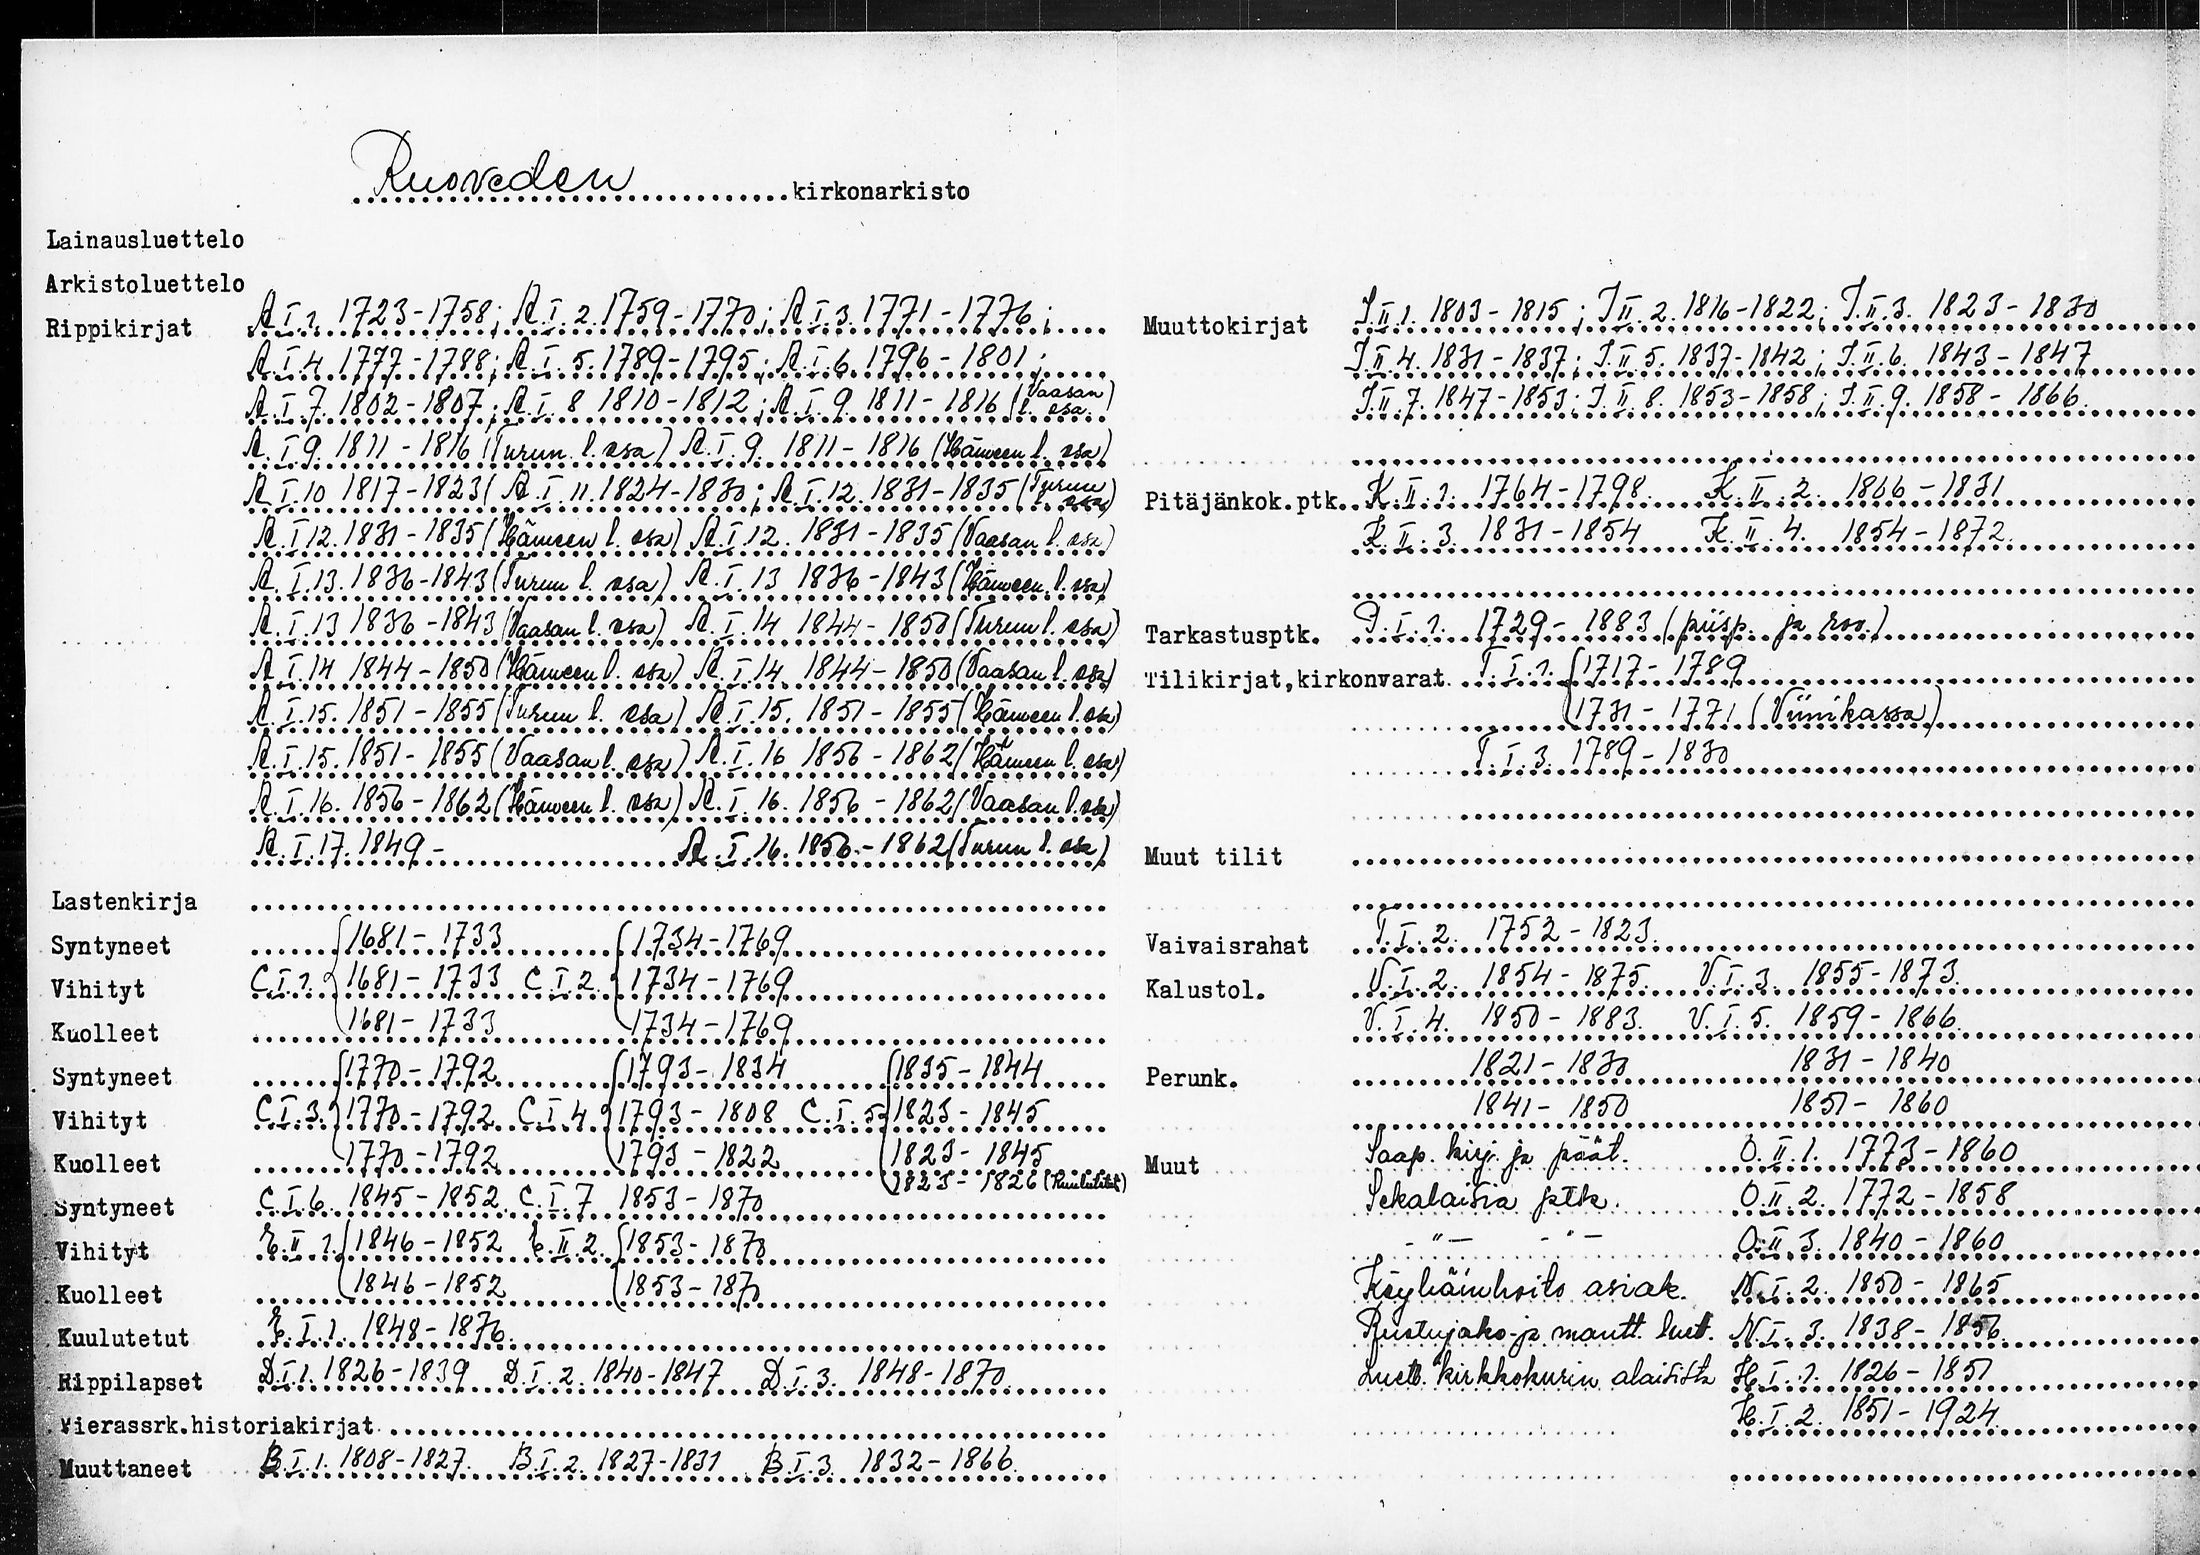 Ruoveden kirkonarkisto
Lainausluettelo
Arkistoluettelo
Rippikirjat A.I.1. 1723-1758; A.I.2. 1759-1770; A.I.3. 1771-1776;
A.I.4 1777-1788; A.I.5. 1789-1795; A.I.6 1796-1801;
A.I.7. 1802-1807; A.I.8 1810-1812; A.I.9. 1811-1816 (Vaasan l. osa)
A.I.9. 1811-1816 (Turun l. osa) A.I.9. 1811-1816 (Hämeen l. osa)
A.I.10 1817-1823( A.I.11. 1824-1830; A.I.12. 1831-1835 (Turun osa)
A.I.12. 1831-1835 (Hämeen l. osa) A.I.12. 1831-1835 (Vaasan l. osa)
A.I.13. 1836-1843 (Turun l. osa) A.I.13 1836-1843 (Hämeen l. osa)
A.I.13 1836-1843 (Vaasan l. osa) A.I.14 1844-1850 (Turun l. osa)
A.I.14 1844-1850 (Hämeen l. osa) A.I.14 1844-1850 (Vaasan l. osa)
A.I.15. 1851-1855 (Turun l. osa) A.I.15. 1851-1855 (Hämeen l. osa)
A.I.15. 1851-1855 (Vaasan l. osa) A.I.16 1856-1862 (Hämeen l. osa)
A.I.16. 1856-1862 (Hämeen l. osa) A.I.16. 1856-1862 (Vaasan l. osa)
A.I.17. 1849- A.I.16. 1856-1862 (Turun l. osa)
Lastenkirja
Syntyneet 1681-1733 1734-1769
Vihityt C.I.1. 1681-1733 C.I.2. 1734-1769
Kuolleet 1681-1733 1734-1769
Syntyneet 1770-1792 1793-1834 1835-1844
Vihityt C.I.3. 1770-1792 C.I.4 1793-1808 C.I.5 1823-1845
Kuolleet 1770-1792 1793-1822 1823-1845
1823-1826 (Kuulutetut)
Syntyneet C.I.6. 1845-1852 C.I.7 1853-1870
Vihityt E.II.1. 1846-1852 E.II.2. 1853-1870
Kuolleet 1846-1852 1853-1870
Kuulutetut E.I.1. 1848-1876.
Rippilapset D.I.1. 1826-1839 D.I.2. 1840-1847 D.I.3. 1848-1870
Vierassrk.historiakirjat
Muuttaneet B.I.1. 1808-1827. B.I.2. 1827-1831 B.I.3 1832-1866.
Muuttokirjat J.II.1. 1803-1815; J.II.2. 1816-1822; J.II.3. 1823-1830
J.II.4. 1831-1837; J.II.5. 1837-1842; J.II.6. 1843-1847
J.II.7. 1847-1853; J.II.8. 1853-1858; J.II.9. 1858-1866.
Pitäjänkok.ptk. K.II.1. 1764-1798. K.II.2. 1806-1831
K.II.3. 1831-1854 K.II.4. 1854-1872.
Tarkastusptk. P.I.1. 1729-1883 (piisp. ja rov.)
Tilikirjat,kirkonvarat T.I.1. 1717-1789
1731-1771 (Viinikassa)
T.I.3. 1789-1830
Muut tilit
Vaivaisrahat T.I.2. 1752-1823.
Kalustol. V.I.2. 1854-1875. V.I.3. 1855-1873.
V.I.4. 1850-1883. V.I.5. 1859-1866.
Perunk. 1821-1830 1831-1840
1841-1850 1851-1860
Muut Saap. kirj. ja päät. O.II.1. 1773-1860
Sekalaisia ptk. O.II.2. 1772-1858
-"- -"- O.II.3. 1840-1860
Köyhäinhoito asiak. N.I.2. 1850-1865
Ruotujako-ja mantt. luett. N.I.3. 1838-1856.
Luett. kirkkokurin alaisista H.I.1. 1826-1851
H.I.2. 1851-1924.